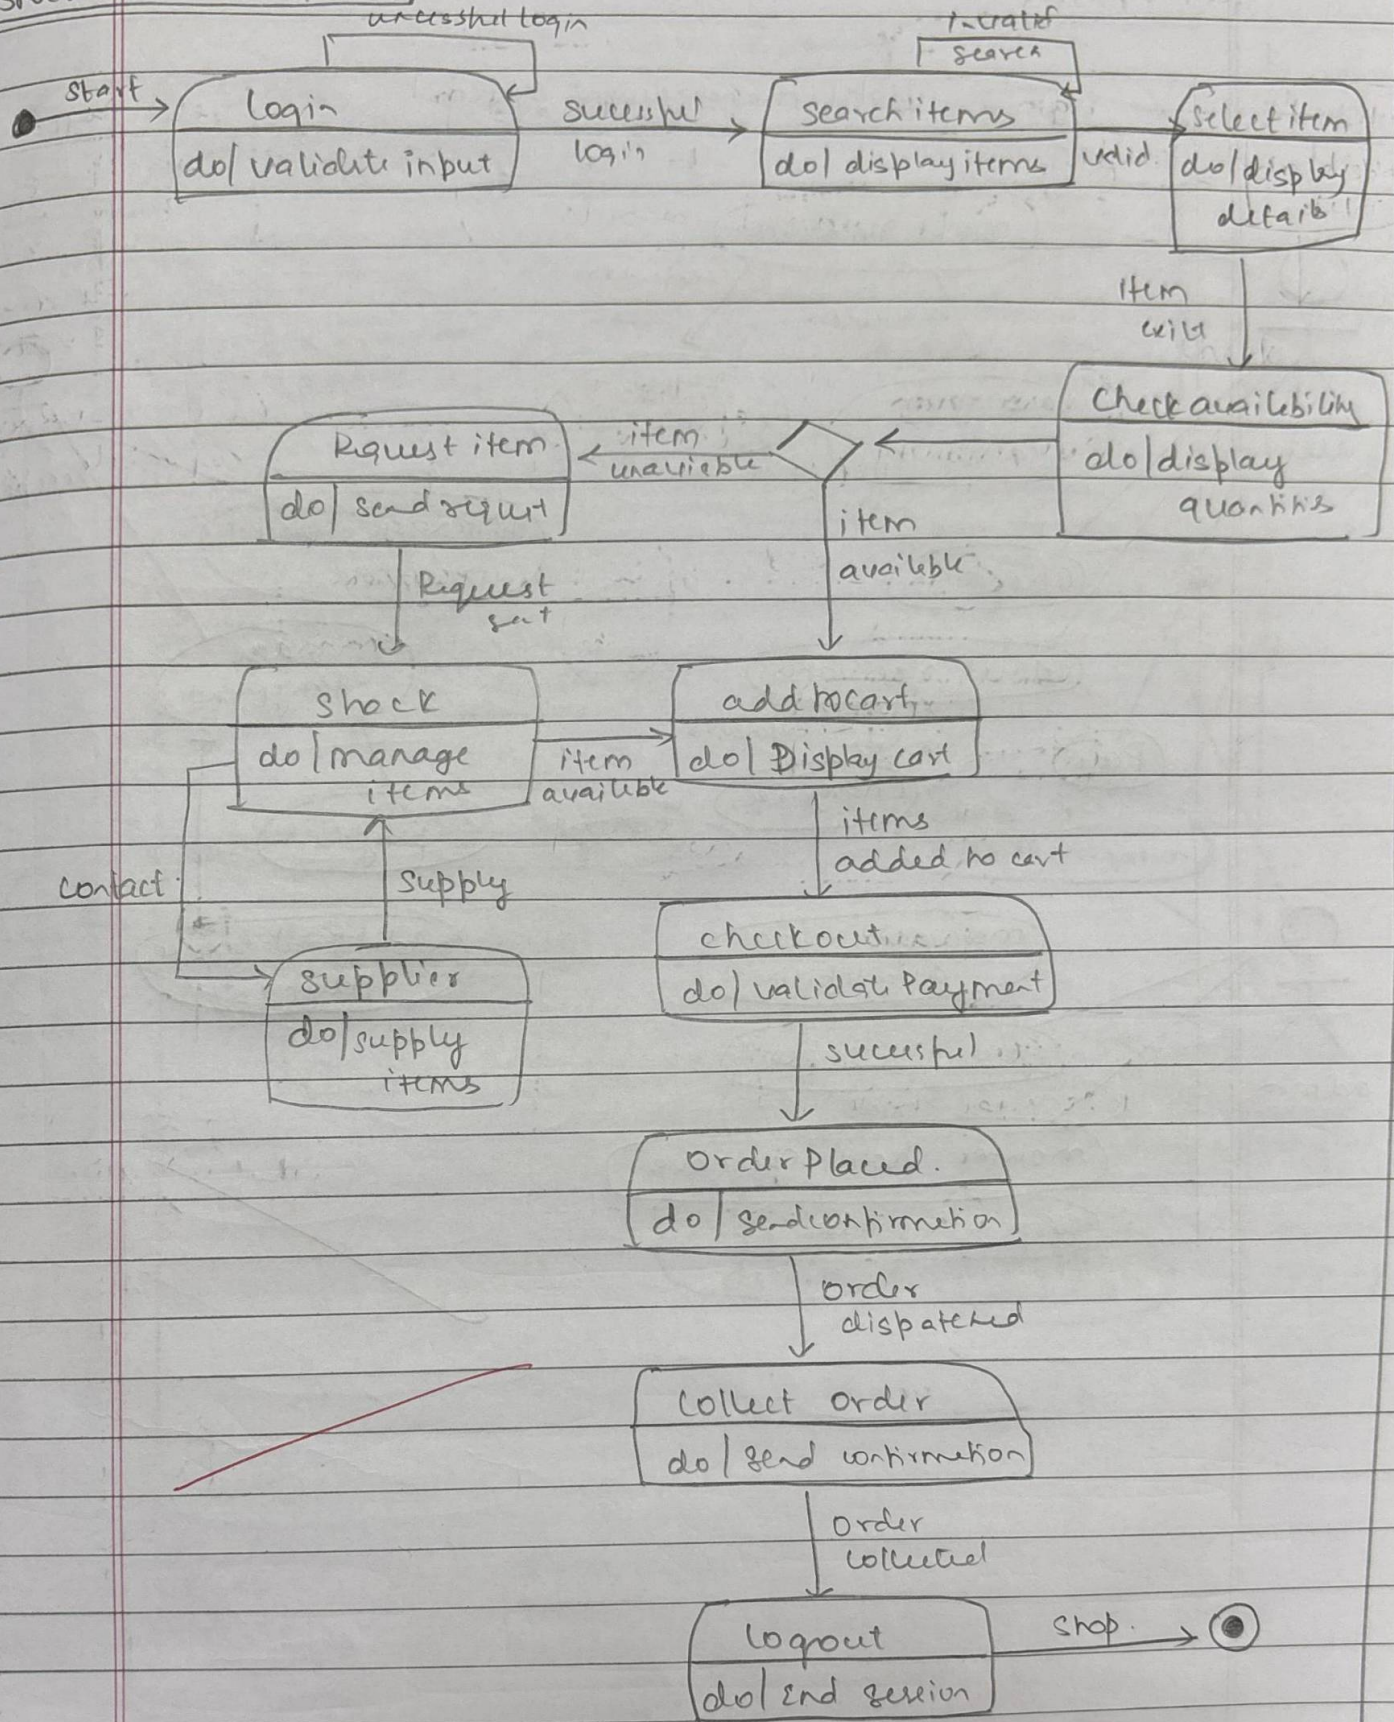 uncesshul login
invalid
search
start
login
do/ validate input
sucessful
login
search items
do/ display items
valid
select item
do/display
details
item
exist
check availability
do/display
quantitis
item
unavieble
Request item
do/ send request
item
available
Request
sent
shock
do/manage
items
item
available
add to cart
do/ Display cart
items
added to cart
contact
supply
supplier
do/supply
items
checkout
do/validate Payment
sucessful
order Placed.
do/ send confirmation
order
dispatched
collect order
do/ send confirmation
order
collected
logout
do/ End session
stop.